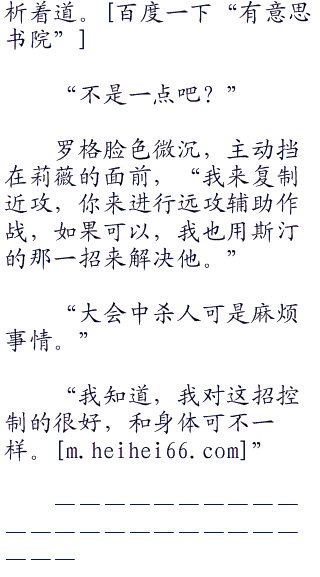 析着道。[百度一下“有意思
书院”]
“不是一点吧？”
罗格脸色微沉，主动挡
在莉薇的面前，“我来复制
近攻，你来进行远攻辅助作
战，如果可以，我也用斯汀
的那一招来解决他。”
“大会中杀人可是麻烦
事情。”
“我知道，我对这招控
制的很好，和身体可不一
样。[m.heihei66.com]”
——————————
————————————
———